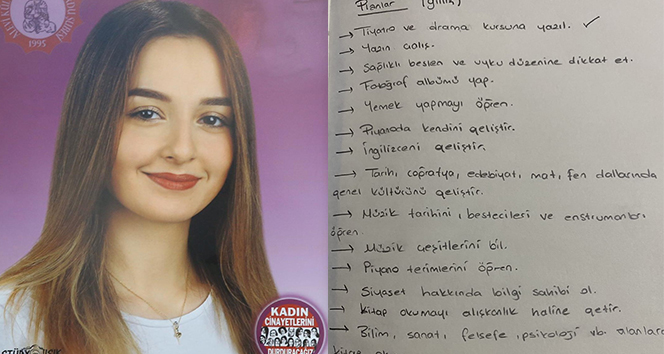 1995
KADIN
CİNAYETLERİNİ
DURDURACAĞIZ
Planlar
→ Tiyatro ve drama kursuna yazıl. ✓
→ Yazın çalış.
→ Sağlıklı beslen ve uyku düzenine dikkat et.
→ Fotoğraf albümü yap.
→ Yemek yapmayı öğren.
→ Piyanoda kendini geliştir.
→ İngilizceni geliştir.
→ Tarih, coğrafya, edebiyat, mat, fen dallarında
genel kültürünü geliştir.
→ Müzik tarihini, bestecileri ve enstrumanları
öğren.
→ Müzik çeşitlerini bil.
→ Piyano terimlerini öğren.
→ Siyaset hakkında bilgi sahibi ol.
→ Kitap okumayı alışkanlık haline getir.
→ Bilim, sanat, felsefe, psikoloji vb. alanlara